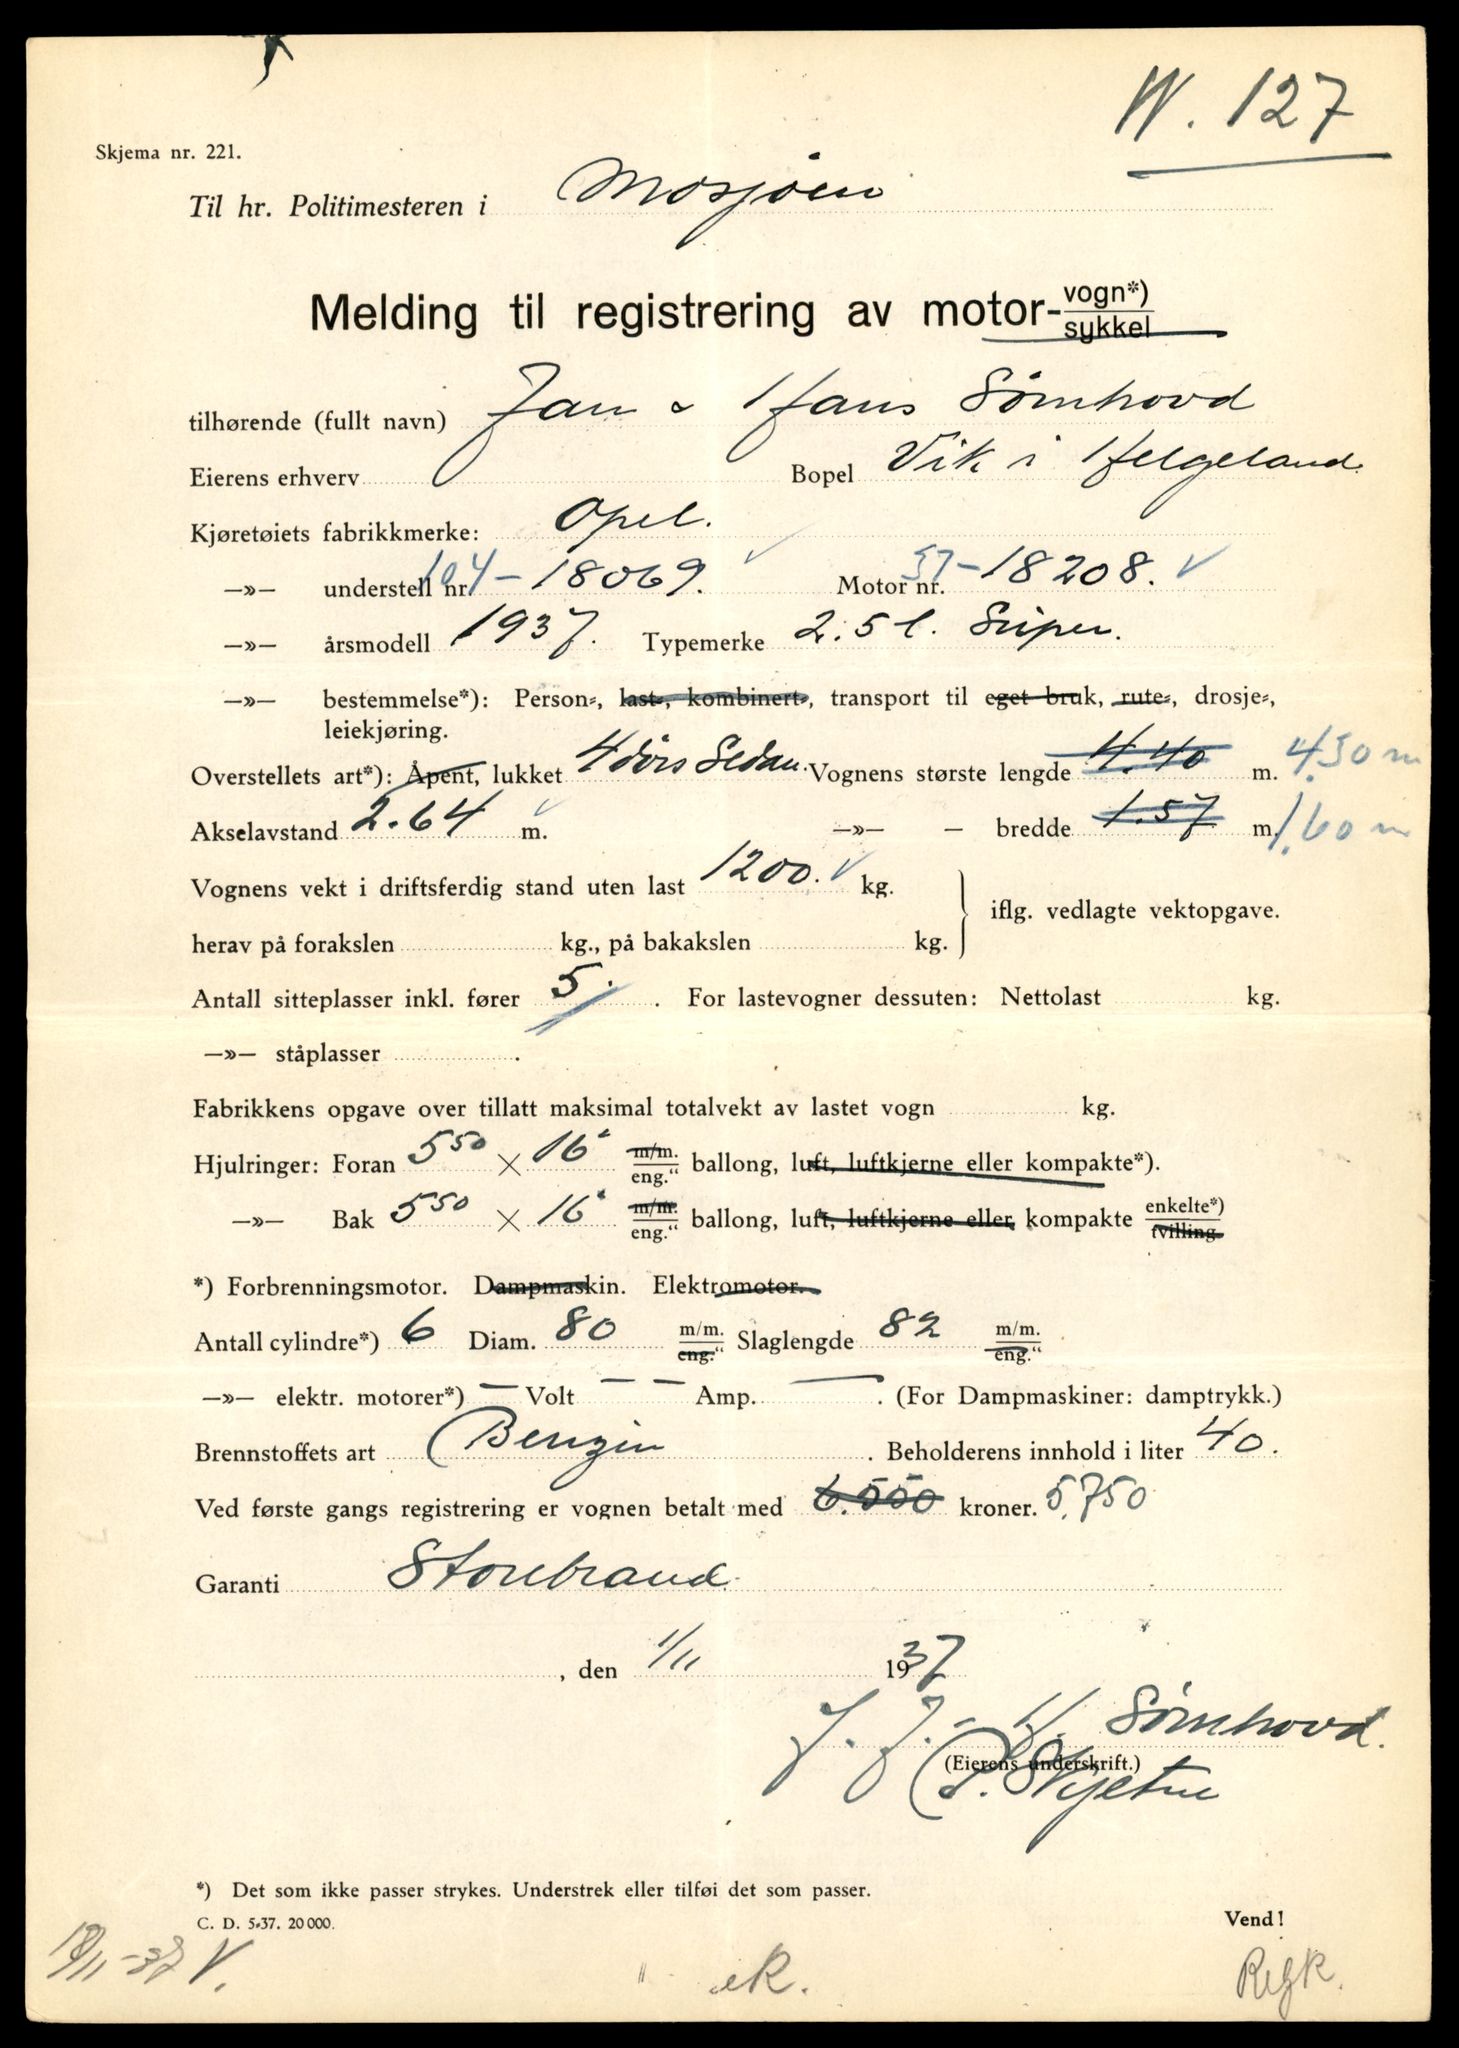 W. 127
Skjema nr. 221.
Til hr. Politimesteren i Mosjøen
Melding til registrering av motor- vogn*) sykkel
tilhørende (fullt navn) Jan & Hans Sømhovd
Eierens erhverv Bopel Vik i Helgeland.
Kjøretøiets fabrikkmerke: Opel.
—»— understell nr. 104 - 18069. Motor nr. 37-18208.
—»— årsmodell 1937. Typemerke 2.5 l. Super.
—»— bestemmelse*): Person-, last-, kombinert-, transport til eget bruk, rute-, drosje-,
leiekjøring.
Overstellets art*): Åpent, lukket 4 dørs Sedan. Vognens største lengde 4.40 m. 4.50 m
Akselavstand 2.64 m. —»— — bredde 1.57 m. 1.60 m
Vognens vekt i driftsferdig stand uten last 1200. kg.
iflg. vedlagte vektopgave.
herav på forakslen kg., på bakakslen kg.
Antall sitteplasser inkl. fører 5. . For lastevogner dessuten: Nettolast kg.
—»— ståplasser .
Fabrikkens opgave over tillatt maksimal totalvekt av lastet vogn kg.
Hjulringer: Foran 5 50 × 16" m/m. eng." ballong, luft, luftkjerne eller kompakte*).
—»— Bak 5 50 × 16" m/m. eng." ballong, luft, luftkjerne eller kompakte enkelte*) tvilling.
*) Forbrenningsmotor. Dampmaskin. Elektromotor.
Antall cylindre*) 6 Diam. 80 m/m. eng." Slaglengde 82 m/m. eng."
—»— elektr. motorer*) — Volt — — Amp. — . (For Dampmaskiner: damptrykk.)
Brennstoffets art Benzin . Beholderens innhold i liter 40.
Ved første gangs registrering er vognen betalt med 6.550 kroner. 5.750
Garanti Storebrand.
, den 1/11 1937
J. J. & H. Sømhovd.
(Eierens underskrift.)
P. Skjetne
*) Det som ikke passer strykes. Understrek eller tilføi det som passer.
C. D. 5-37. 20 000.
Vend!
18/11-37 V.
eR.